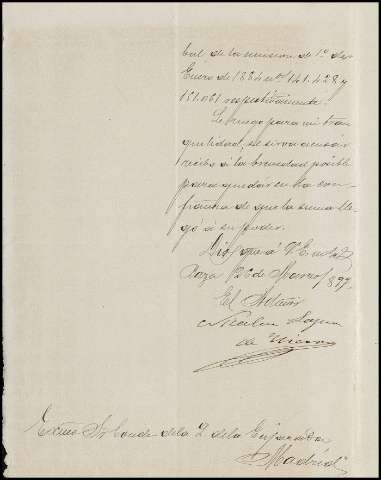 tal de la emision de 1º de
Enero de 1884 nos. 141.428 y
151.061 respectivamente.
Le ruego para mi tran
quilidad, se sirva acusar
recibo á la brevedad posible
para quedar en la con-
fianza de que la suma lle-
gó á su poder.
Dios gue. á V.E.
Baza 26 de Marzo / 897.
El Notario
de
Exmo Sr Conde de la de la
Madrid